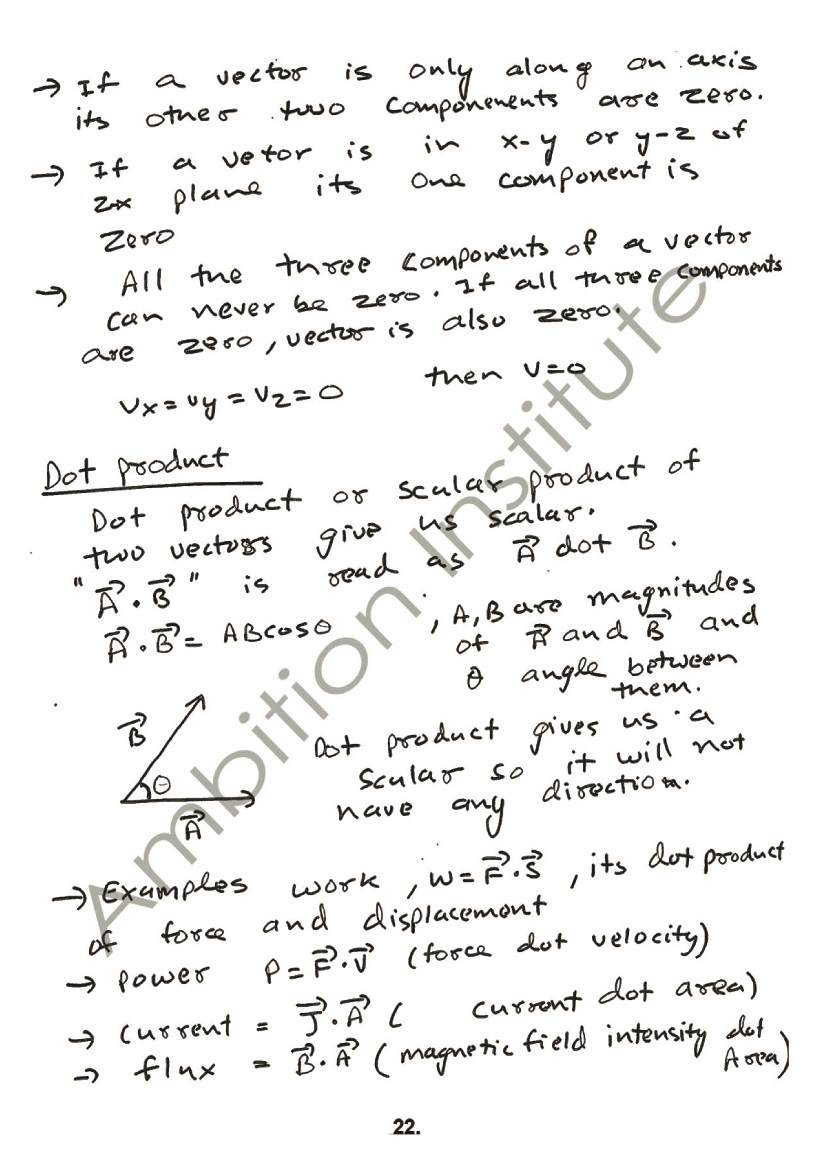 → If a vector is only along an axis
its other two componenents are zero.
→ If a vetor is in x-y or y-z of
zx plane its one component is
Zero
→ All the three components of a vector
can never be zero. If all three components
are zero, vector is also zero.
Vx = Vy = Vz = 0 then V=0
Dot product
Dot product or scalar product of
two vectors give us scalar.
"A⃗ . B⃗" is read as A⃗ dot B⃗.
A⃗ . B⃗ = ABcosθ , A, B are magnitudes
of A⃗ and B⃗ and
θ angle between
them.
B⃗
θ
A⃗
Dot product gives us a
scalar so it will not
have any direction.
→ Examples work, W = F⃗.S⃗, its dot product
of force and displacement
→ Power P = F⃗.V⃗ (force dot velocity)
→ Current = J⃗.A⃗ ( current dot area)
→ flux = B⃗.A⃗ (magnetic field intensity dot
Area)
Ambition Institute
22.